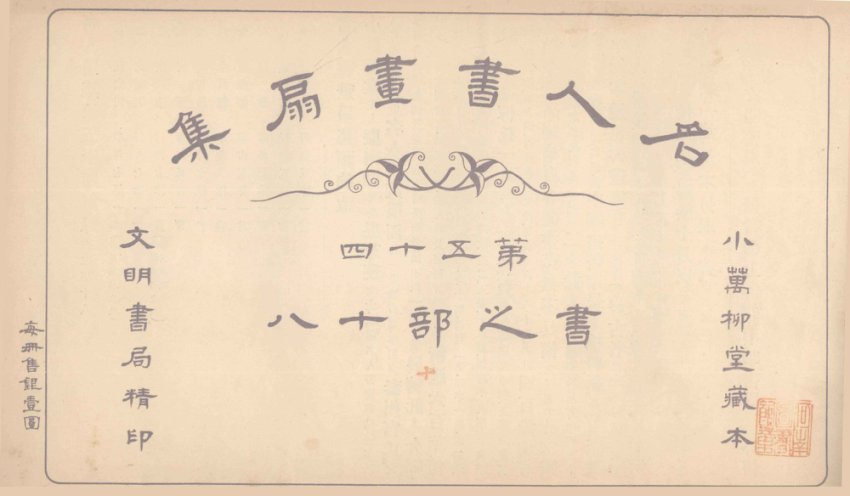 名人書畫扇集
第五十四
書之部十八
十
小萬柳堂藏本
文明書局精印
每冊售銀壹圓